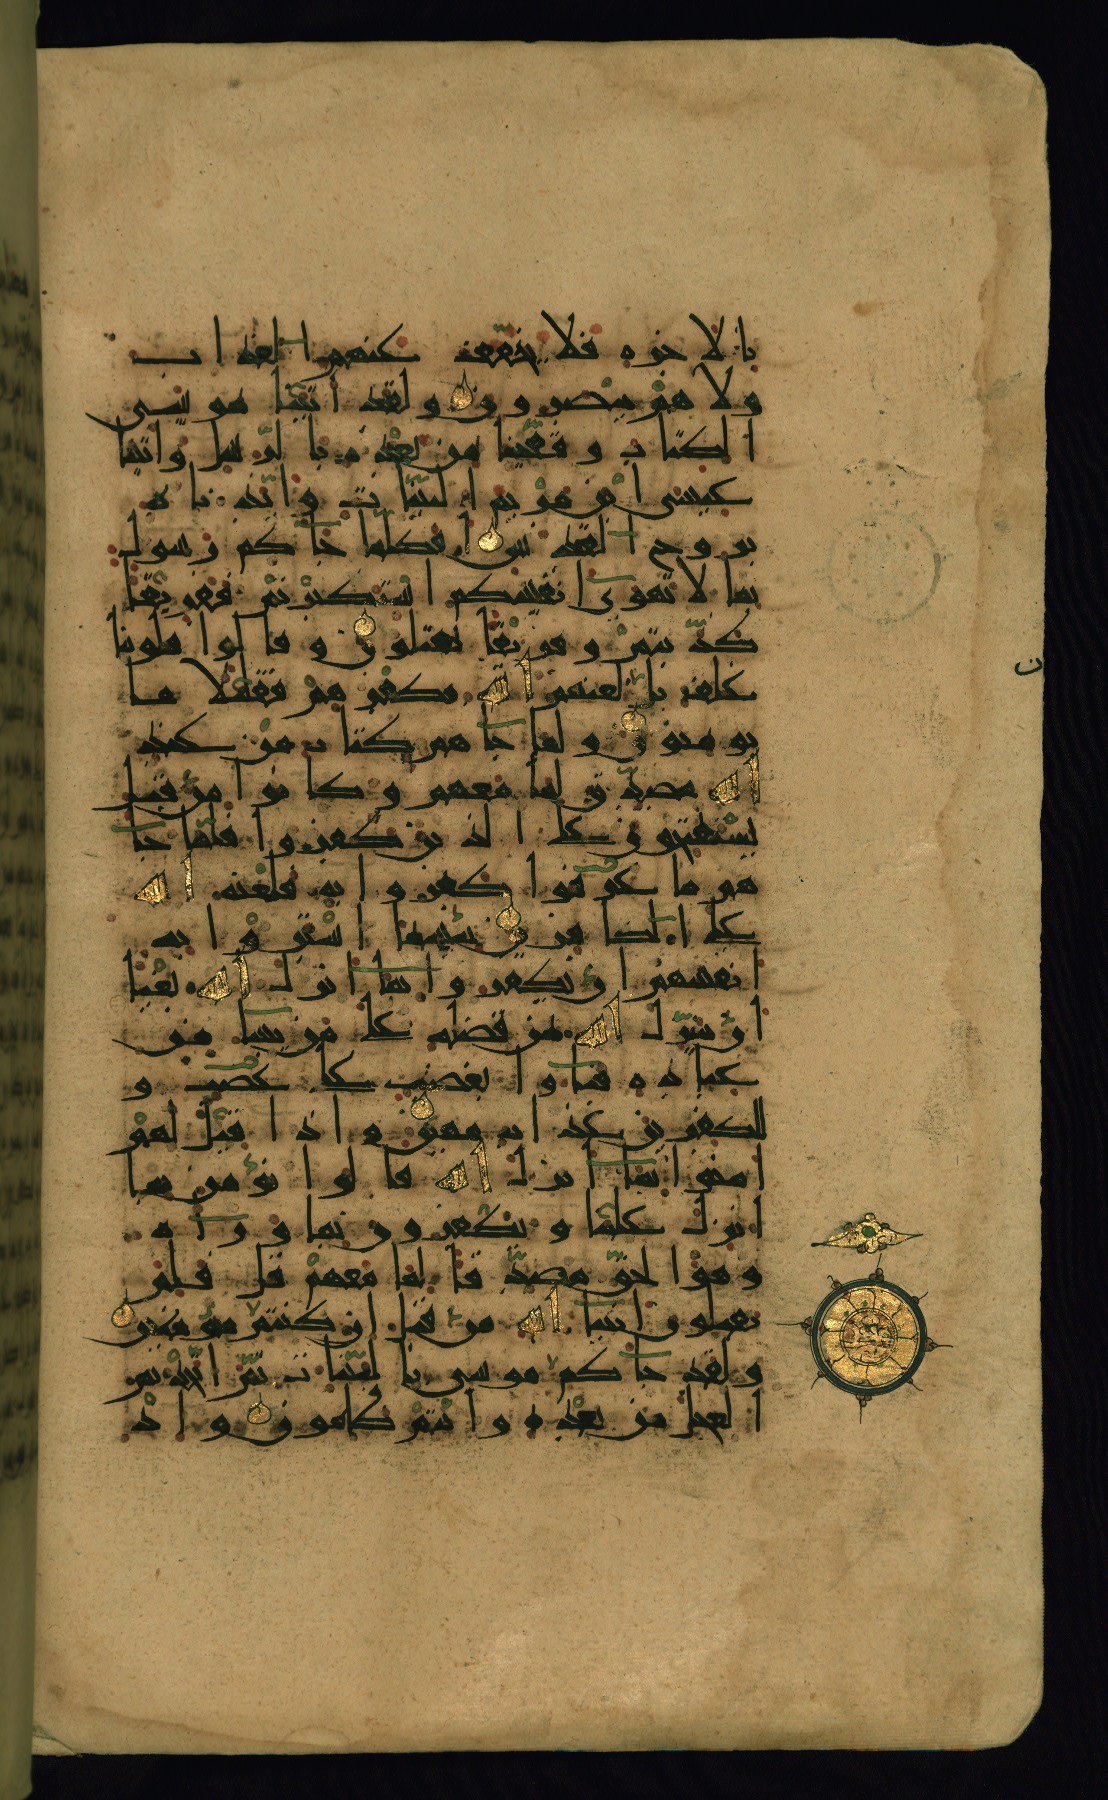 بالاخرة فلا يخفف عنهم العذاب
ولا هم ينصرون ولقد اتينا موسى
الكتاب وقفينا من بعده بالرسل واتينا
عيسى ابن مريم البينات وايدناه
بروح القدس افكلما جاكم رسول
بما لا تهوى انفسكم استكبرتم ففريقا
كذبتم وفريقا تقتلون وقالوا قلوبنا
غلف بل لعنهم الله بكفرهم فقليلا ما
يومنون ولما جاهم كتاب من عند
الله مصدق لما معهم وكانوا من قبل
يستفتحون على الذين كفروا فلما جا
هم ما عرفوا كفروا به فلعنة الله
على الكافرين بئسما اشتروا به
انفسهم ان يكفروا بما انزل الله بغيا
ان ينزل الله من فضله على من يشا من
عباده فباوا بغضب على غضب و
للكفرين عذاب مهين واذا قيل لهم
امنوا بما انزل الله قالوا نومن بما
انزل علينا ويكفرون بما وراه
وهو الحق مصدقا لما معهم قل فلم
تقتلون انبيا الله من قبل ان كنتم مومنين
ولقد جاكم موسى بالبينات ثم اتخذتم
العجل من بعده وانتم ظالمون واذ